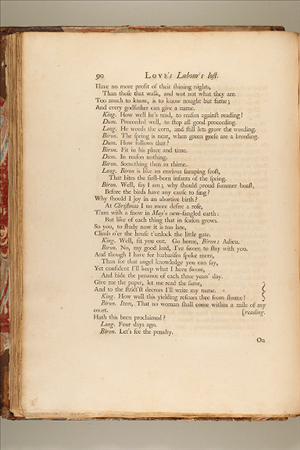 90 LOVE's Labour's lost.
Have no more profit of their shining nights,
Than those that walk, and wot not what they are.
Too much to know, is to know nought but fame;
And every godfather can give a name.
King. How well he's read, to reason against reading!
Dum. Proceeded well, to stop all good proceeding.
Long. He weeds the corn, and still lets grow the weeding.
Biron. The spring is near, when green geese are a breeding.
Dum. How follows that?
Biron. Fit in his place and time.
Dum. In reason nothing.
Biron. Something then in rhime.
Long. Biron is like an envious sneaping frost,
That bites the first-born infants of the spring.
Biron. Well, say I am; why should proud summer boast,
Before the birds have any cause to sing?
Why should I joy in an abortive birth?
At Christmas I no more desire a rose,
Than wish a snow in May's new-fangled earth:
But like of each thing that in season grows.
So you, to study now it is too late,
Climb o'er the house t'unlock the little gate.
King. Well, sit you out. Go home, Biron: Adieu.
Biron. No, my good lord, I've sworn to stay with you.
And though I have for barbarism spoke more,
Than for that angel knowledge you can say,
Yet confident I'll keep what I have sworn,
And bide the penance of each three years' day.
Give me the paper, let me read the same,
And to the strict'st decrees I'll write my name.
King. How well this yielding rescues thee from shame!
Biron. Item, That no woman shall come within a mile of my
court. [reading.
Hath this been proclaimed?
Long. Four days ago.
Biron. Let's see the penalty.
On